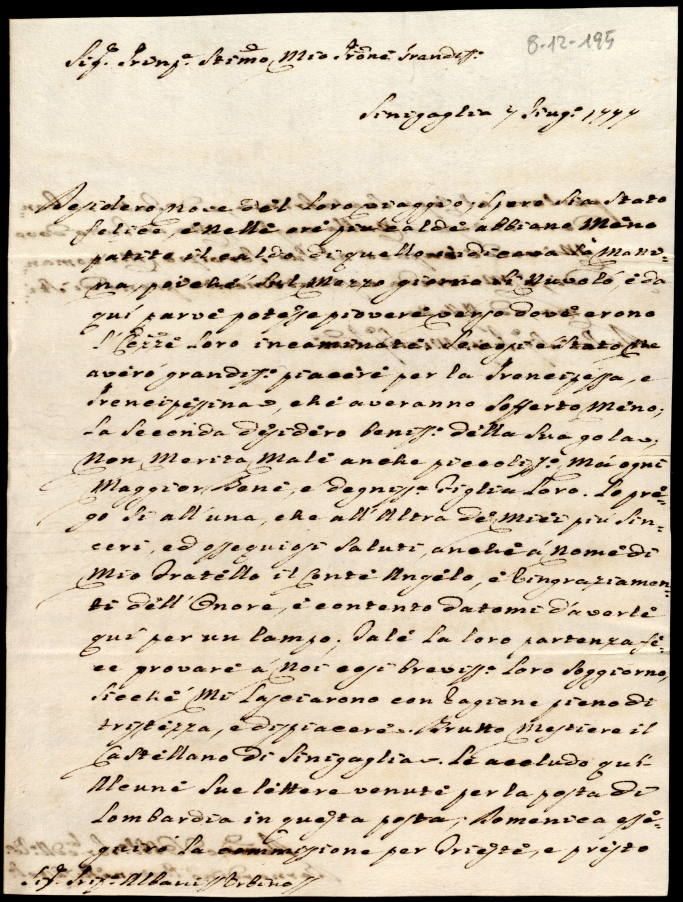 8-12-195
Sigr. Prenpe. Stimo, Mio Prone Grandiss.
Senigaglia 7 Giugo 1777
Desidero nove del loro viaggio, spero sia stato
felice, e nelle ore più calde abbiano meno
patito il caldo di quello si diceva la matti-
na, poiché sul mezzo giorno si nuvolò e da
quì parve potesse piovere verso dove erono
l'Ecze loro incaminate. Se così è stato, ne
averò grandiss. piacere per la Prencipessa, e
Prencipessina, che averanno sofferto meno;
La seconda desidero beniss. della sua gola,
non merita male anche piccoliss., ma ogni
maggior bene, e degniss. Figlia loro. Lo pre-
go sì all'una, che all'altra de' miei più sin-
ceri, ed ossequiosi saluti, anche a nome di
mio Fratello il Conte Angelo, e ringraziamen-
ti dell'onore, e contento datomi d'averle
quì per un lampo; Tale la loro partenza fe-
ce provare a noi così breviss. loro soggiorno,
sicché mi lasciarono con ragione pieno di
tristezza, e dispiacere. Brutto mestiere il
Castellano di Senigaglia. Le accludo quì
alcune sue lettere venute per la posta di
Lombardia in questa posta; Domenica ese-
guirò la commissione per Trieste, e presto
Sigr. Prinpe. Albani Urbino